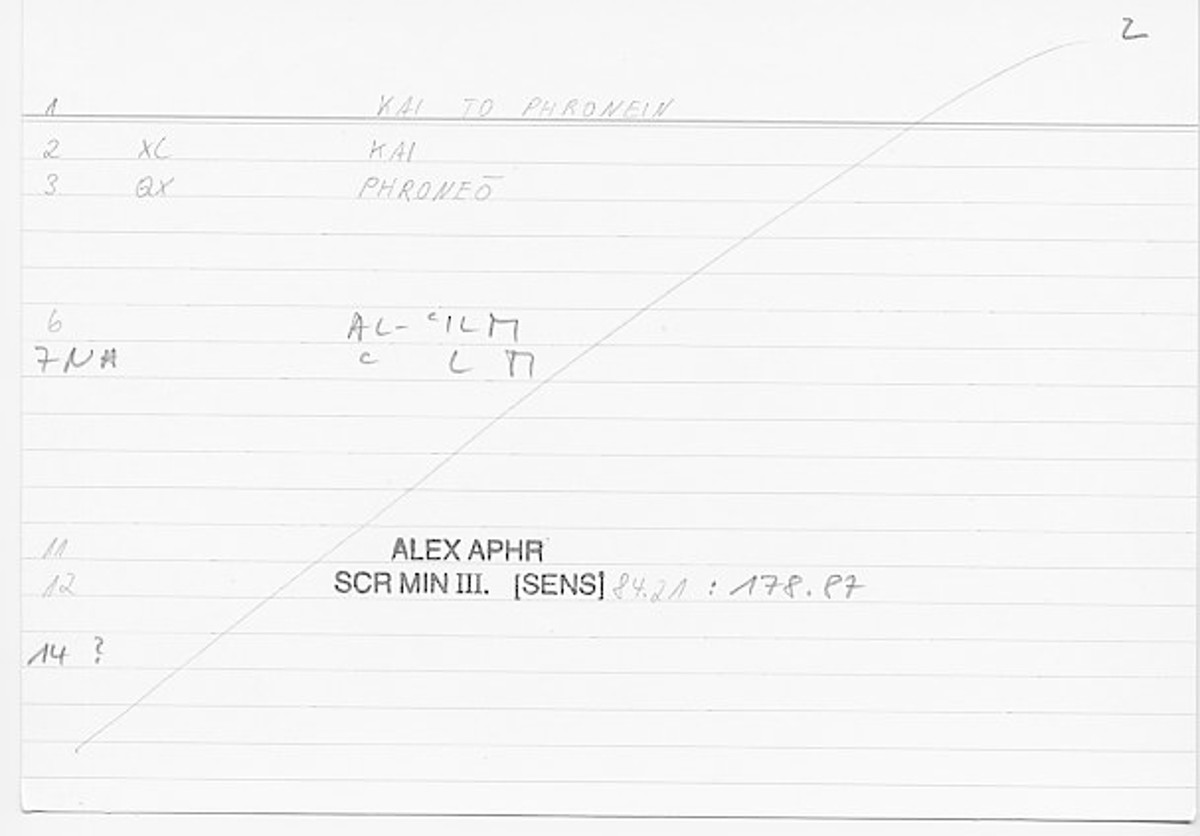 2
1 KAI TO PHRONEIN
2 XL KAI
3 QX PHRONEŌ
6 AL-ʿILM
7 NA ʿ L M
11 ALEX APHR
12 SCR MIN III. [SENS] 84.21 : 178.87
14 ?